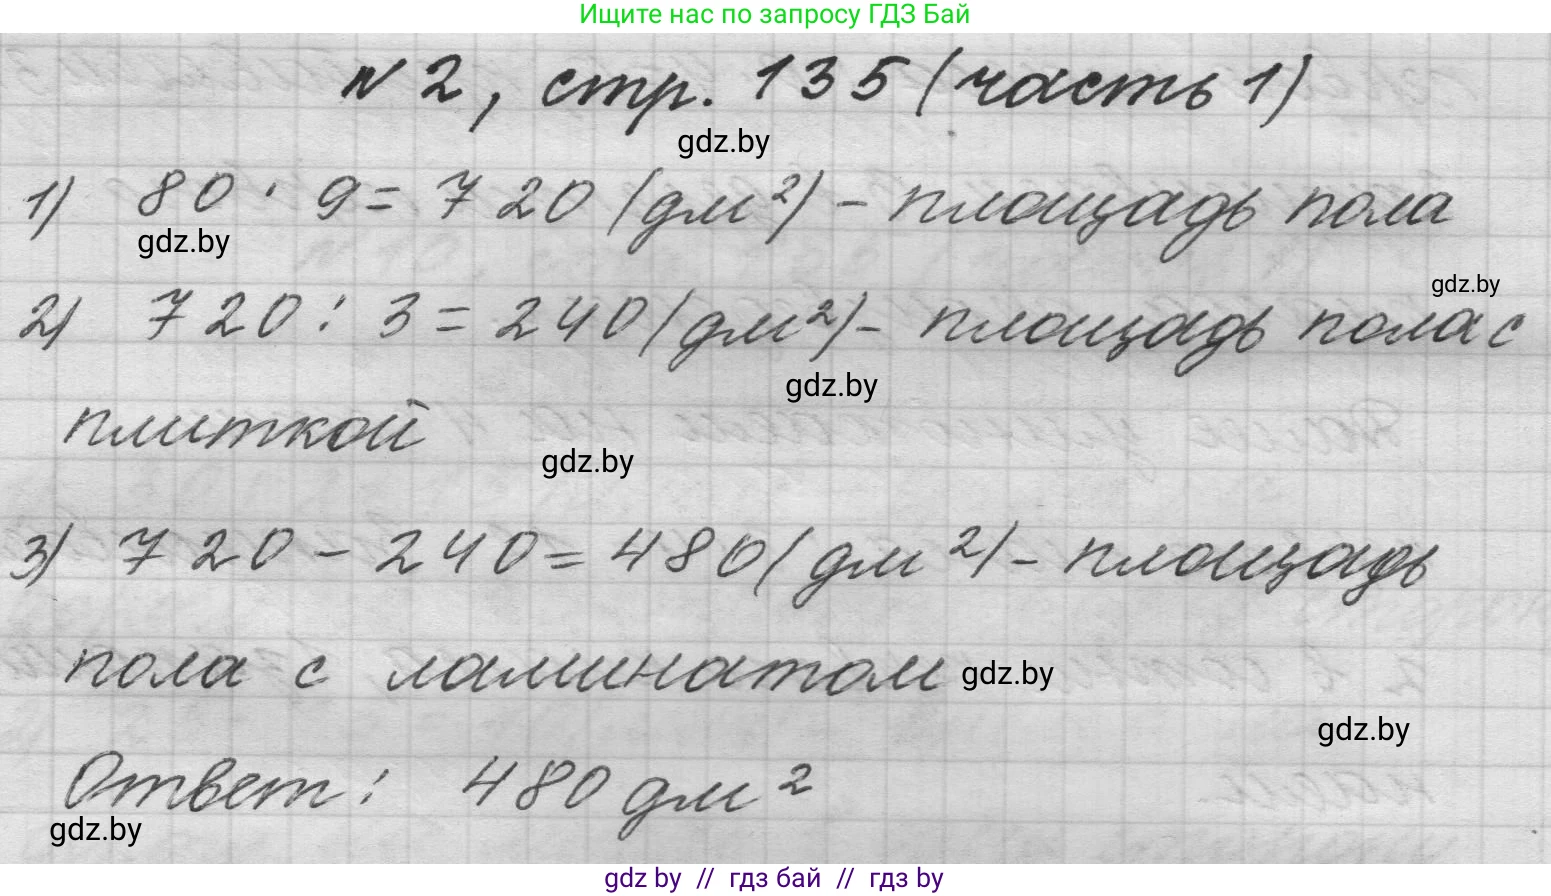 Ищите нас по запросу ГДЗ Бай
№ 2, стр. 135 (часть 1)
gdz.by
1) 80 · 9 = 720 (дм²) - площадь пола
gdz.by
gdz.by
2) 720 : 3 = 240 (дм²) - площадь пола с
gdz.by
плиткой
gdz.by
3) 720 - 240 = 480 (дм²) - площадь
пола с ламинатом gdz.by
gdz.by
Ответ: 480 дм²
gdz.by
gdz by // гдз бай // гдз by